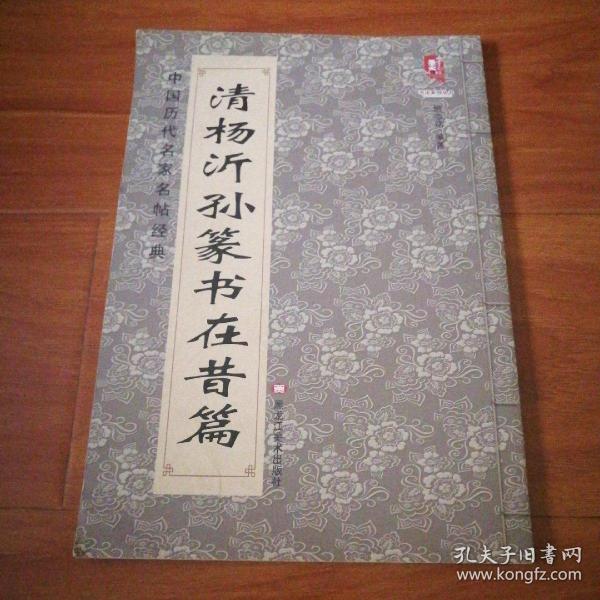 清杨沂孙篆书在昔篇
中国历代名家名帖经典
黑龙江美术出版社
孔夫子旧书网
www.kongfz.com